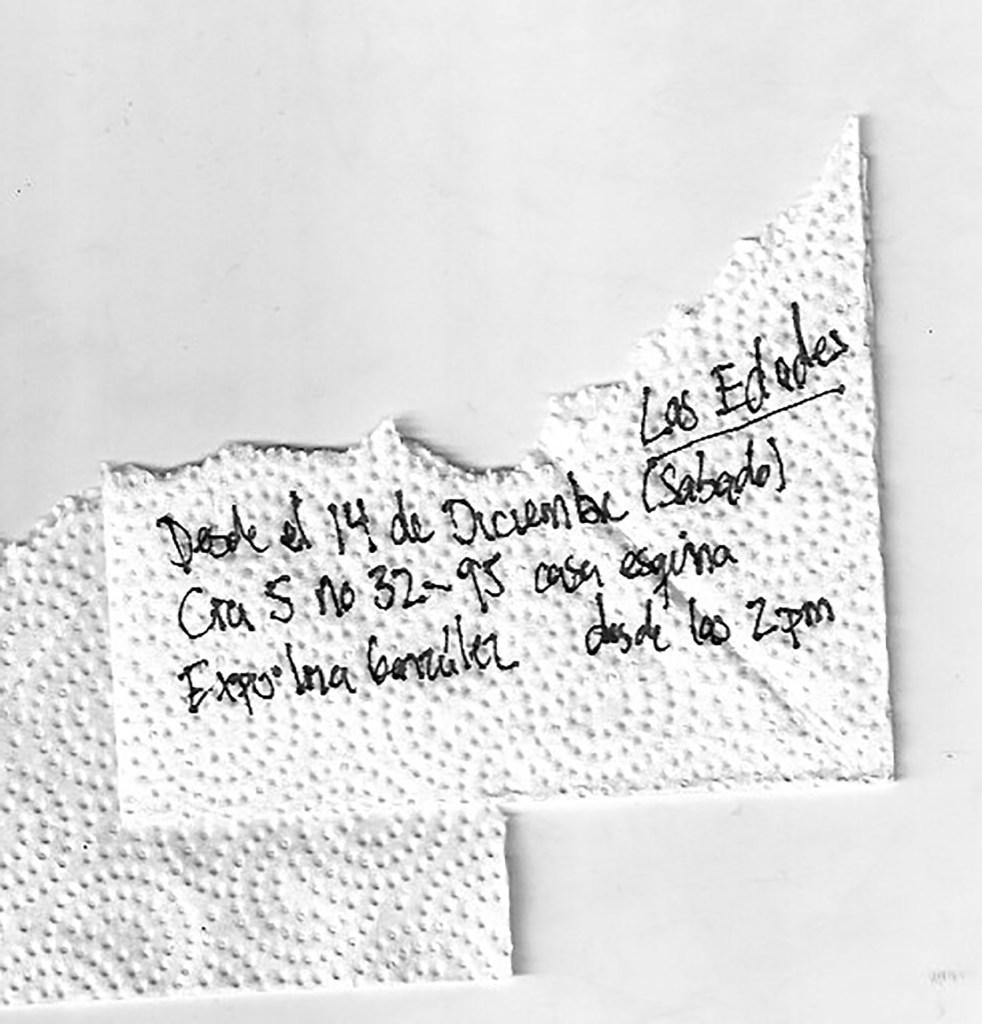 Las Edades
Desde el 14 de Diciembre (Sabado)
Cra 5 no 32-95 casa esquina
Expo: Lina González desde las 2pm